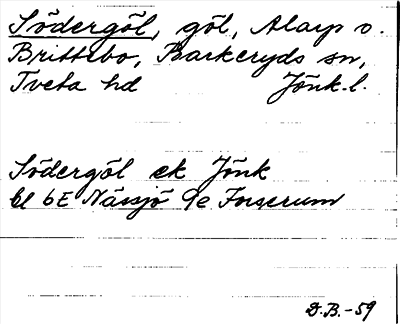 Södergöl, göl, Alarp o.
Brittebo, Barkeryds sn,
Tveta hd Jönk. l.
Södergöl ek Jönk
bl 6E Nässjö 9e Forserum
D.B.-59